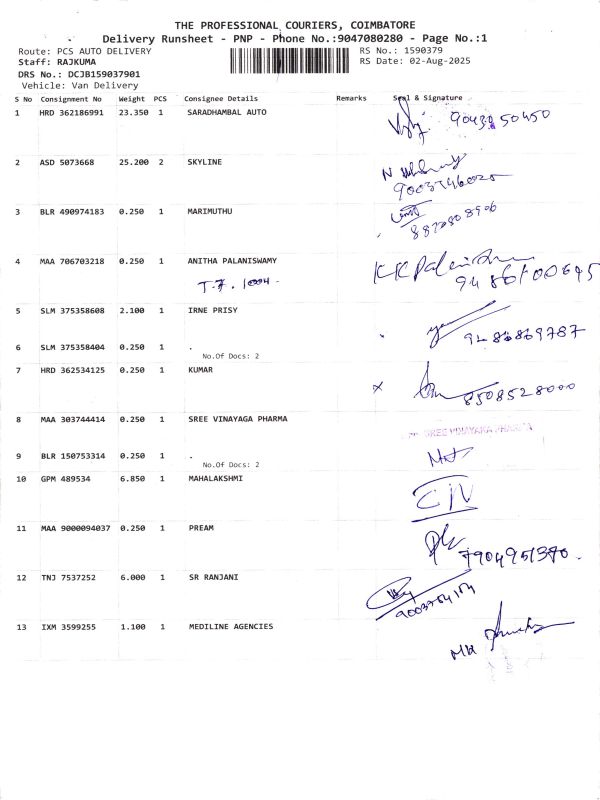 THE PROFESSIONAL COURIERS, COIMBATORE
Delivery Runsheet - PNP - Phone No.:9047080280 - Page No.:1
Route: PCS AUTO DELIVERY RS No.: 1590379
Staff: RAJKUMA RS Date: 02-Aug-2025
DRS No.: DCJB159037901
Vehicle: Van Delivery
S No Consignment No Weight PCS Consignee Details Remarks Seal & Signature
1 HRD 362186991 23.350 1 SARADHAMBAL AUTO
2 ASD 5073668 25.200 2 SKYLINE
3 BLR 490974183 0.250 1 MARIMUTHU
4 MAA 706703218 0.250 1 ANITHA PALANISWAMY
5 SLM 375358608 2.100 1 IRNE PRISY
6 SLM 375358404 0.250 1 .
No.Of Docs: 2
7 HRD 362534125 0.250 1 KUMAR
8508528000
8 MAA 303744414 0.250 1 SREE VINAYAGA PHARMA
SREE VINAYAKA PHARMA
9 BLR 150753314 0.250 1 .
No.Of Docs: 2
10 GPM 489534 6.850 1 MAHALAKSHMI
11 MAA 9000094037 0.250 1 PREAM
7904951370.
12 TNJ 7537252 6.000 1 SR RANJANI
13 IXM 3599255 1.100 1 MEDILINE AGENCIES